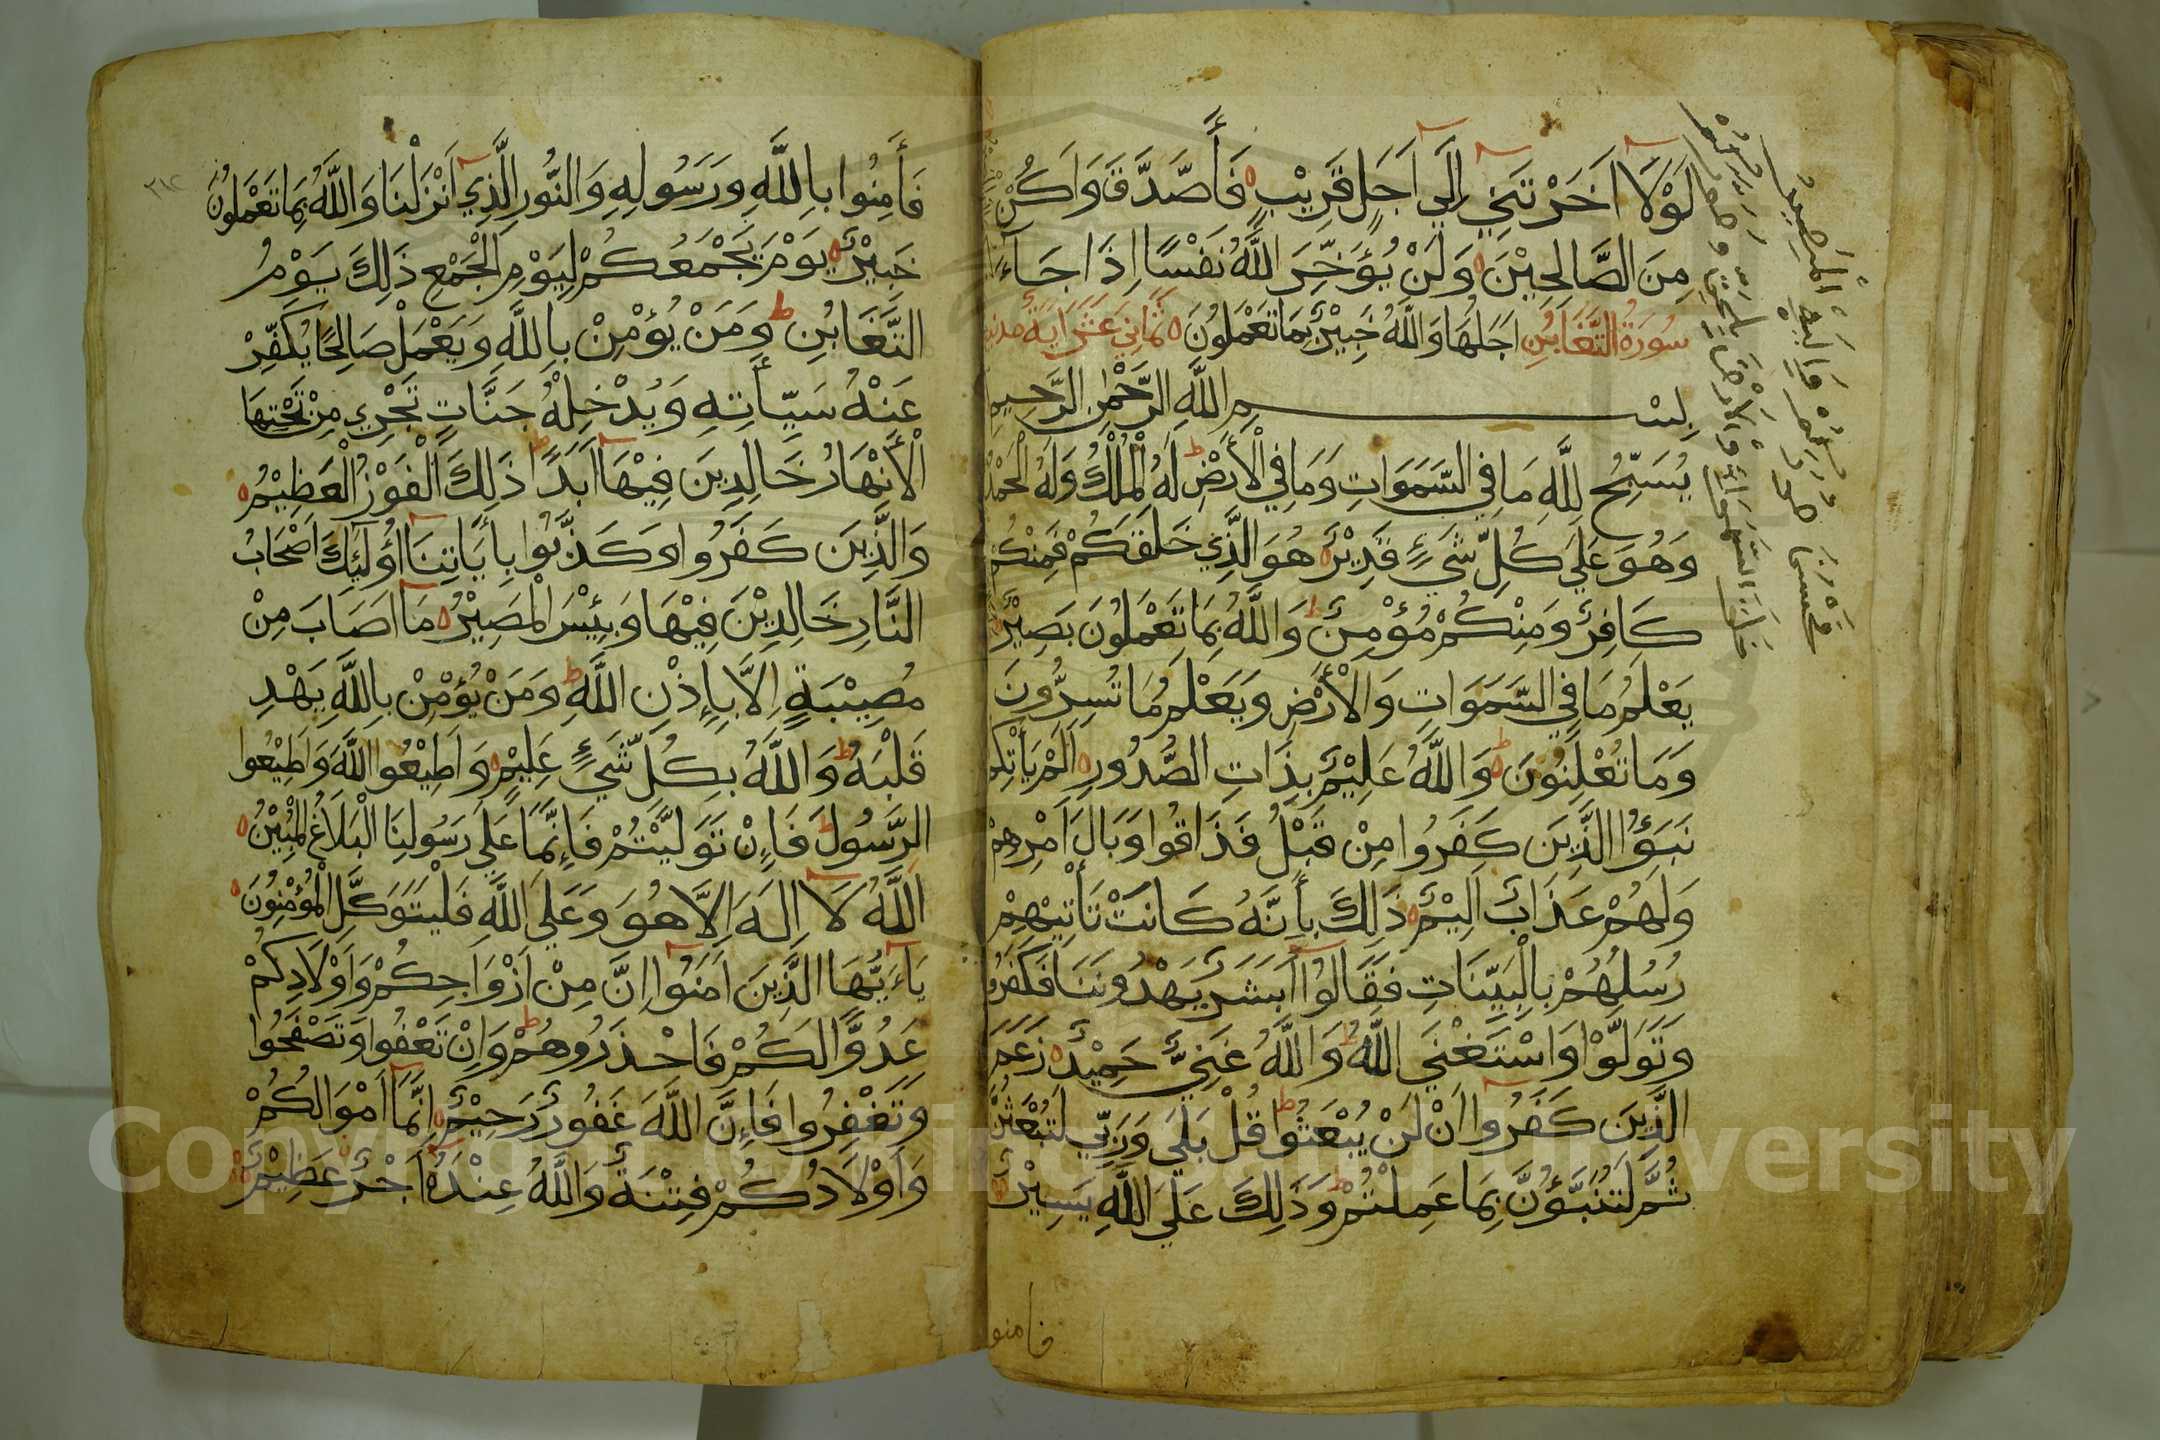 لَوْلَا اَخَرْتَنِي اِلَي اَجَلٍ قَرِيْبٍ فَأَصَّدَّقَ وَاَكُنْ
مِنَ الصَّالِحِيْنَ وَلَنْ يُؤَخِّرَ اللَّهُ نَفْسًا اِذَا جَاءَ
سُورَةُ التَّغَابُنِ اَجَلُهَا وَاللَّهُ خَبِيْرٌ بِمَا تَعْمَلُونَ ثَمَانِي عَشَرَ اٰيَةً مدنية
بِسْمِ اللَّهِ الرَّحْمٰنِ الرَّحِيمِ
يُسَبِّحُ لِلَّهِ مَا فِي السَّمَوَاتِ وَمَا فِي الْأَرْضِ لَهُ الْمُلْكُ وَلَهُ الْحَمْدُ
وَهُوَ عَلَي كُلِّ شَيْءٍ قَدِيْرٌ هُوَ الَّذِي خَلَقَكُمْ فَمِنْكُمْ
كَافِرٌ وَمِنْكُمْ مُؤْمِنٌ وَاللَّهُ بِمَا تَعْمَلُونَ بَصِيْرٌ
خَلَقَ السَّمَوَاتِ وَالْأَرْضَ بِالْحَقِّ وَصَوَّرَكُمْ
فَأَحْسَنَ صُوَرَكُمْ وَاِلَيْهِ الْمَصِيْرُ
يَعْلَمُ مَا فِي السَّمَوَاتِ وَالْأَرْضِ وَيَعْلَمُ مَا تُسِرُّونَ
وَمَا تُعْلِنُونَ وَاللَّهُ عَلِيْمٌ بِذَاتِ الصُّدُورِ اَلَمْ يَأْتِكُمْ
نَبَؤُا الَّذِيْنَ كَفَرُوا مِنْ قَبْلُ فَذَاقُوا وَبَالَ اَمْرِهِمْ
وَلَهُمْ عَذَابٌ اَلِيْمٌ ذَلِكَ بِأَنَّهُ كَانَتْ تَأْتِيْهِمْ
رُسُلُهُمْ بِالْبَيِّنَاتِ فَقَالُوا اَبَشَرٌ يَهْدُونَنَا فَكَفَرُوا
وَتَوَلَّوْا وَاسْتَغْنَي اللَّهُ وَاللَّهُ غَنِيٌّ حَمِيْدٌ زَعَمَ
الَّذِيْنَ كَفَرُوا اَنْ لَنْ يُبْعَثُوا قُلْ بَلَي وَرَبِّي لَتُبْعَثُنَّ
ثُمَّ لَتُنَبَّؤُنَّ بِمَا عَمِلْتُمْ وَذَلِكَ عَلَي اللَّهِ يَسِيْرٌ
فامنوا
٣١٤
فَأٰمِنُوا بِاللَّهِ وَرَسُولِهِ وَالنُّورِ الَّذِي اَنْزَلْنَا وَاللَّهُ بِمَا تَعْمَلُونَ
خَبِيْرٌ يَوْمَ يَجْمَعُكُمْ لِيَوْمِ الْجَمْعِ ذَلِكَ يَوْمُ
التَّغَابُنِ وَمَنْ يُؤْمِنْ بِاللَّهِ وَيَعْمَلْ صَالِحًا يُكَفِّرْ
عَنْهُ سَيِّأَتِهِ وَيُدْخِلْهُ جَنَّاتٍ تَجْرِي مِنْ تَحْتِهَا
الْأَنْهَارُ خَالِدِيْنَ فِيْهَا اَبَدًا ذَلِكَ الْفَوْزُ الْعَظِيْمُ
وَالَّذِيْنَ كَفَرُوا وَكَذَّبُوا بِأَيَاتِنَا اُولَئِكَ اَصْحَابُ
النَّارِ خَالِدِيْنَ فِيْهَا وَبِئْسَ الْمَصِيْرُ مَا اَصَابَ مِنْ
مُصِيْبَةٍ اِلَّا بِإِذْنِ اللَّهِ وَمَنْ يُؤْمِنْ بِاللَّهِ يَهْدِ
قَلْبَهُ وَاللَّهُ بِكُلِّ شَيْءٍ عَلِيْمٌ وَاَطِيْعُوا اللَّهَ وَاَطِيْعُوا
الرَّسُولَ فَاِنْ تَوَلَّيْتُمْ فَاِنَّمَا عَلَي رَسُولِنَا الْبَلَاغُ الْمُبِيْنُ
اَللَّهُ لَا اِلَهَ اِلَّا هُوَ وَعَلَي اللَّهِ فَلْيَتَوَكَّلِ الْمُؤْمِنُونَ
يَاءَيُّهَا الَّذِيْنَ اٰمَنُوا اِنَّ مِنْ اَزْوَاجِكُمْ وَاَوْلَادِكُمْ
عَدُوًّا لَكُمْ فَاحْذَرُوهُمْ وَاِنْ تَعْفُوا وَتَصْفَحُوا
وَتَغْفِرُوا فَاِنَّ اللَّهَ غَفُورٌ رَحِيْمٌ اِنَّمَا اَمْوَالُكُمْ
وَاَوْلَادُكُمْ فِتْنَةٌ وَاللَّهُ عِنْدَهُ اَجْرٌ عَظِيْمٌ